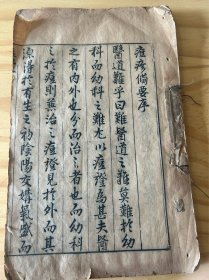 痘疹備要序
醫道難乎曰難醫道之難莫難於幼
科而幼科之難尤以痘證為甚夫醫
之有內外也分而治之者也而幼科
之於痘則兼治之痘證見於外而其
源潛於有生之初陰陽交媾氣盛而